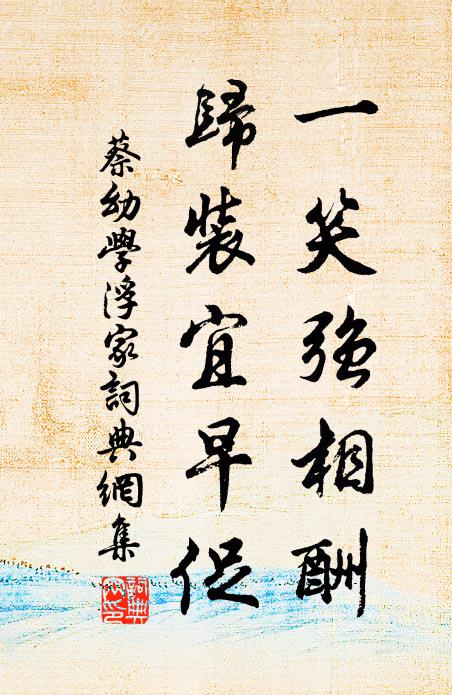 一笑強相酬
歸裝宜早促
蔡幼學浮家詞典網集